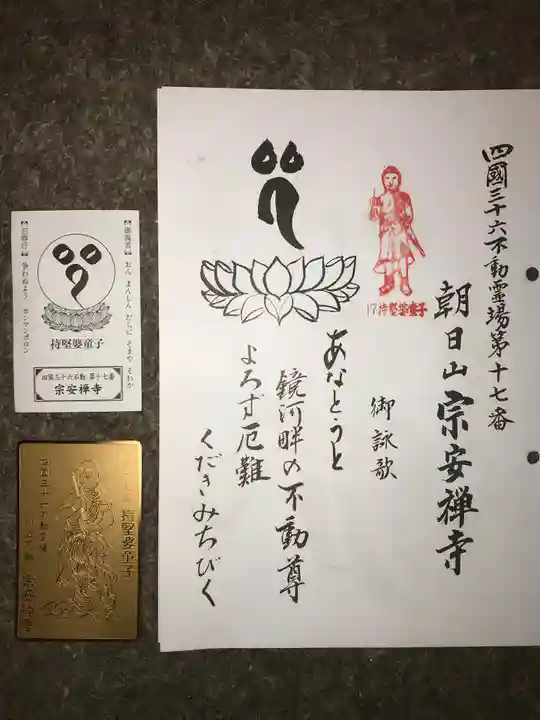 四國三十六不動霊場第十七番
朝日山宗安禅寺
御詠歌
17持堅婆童子
あなとうと
鏡河畔の不動尊
よろず厄難
くだきみちびく
【御真言】おん まんじん だらに そまや そわか
【忍難行】争わぬよう カンマンボロン
持堅婆童子
四国三十六不動 第十七番
宗安禅寺
持堅婆童子
四国三十六不動霊場
宗安禅寺